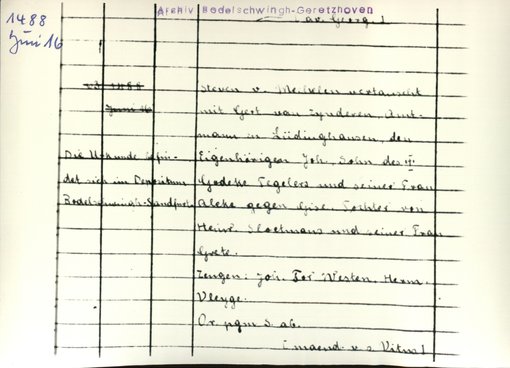 1488
Juni 16
Archiv Bodelschwingh-Geretzhoven
(av. Georg.)
1488
Juni 16
Steven v. Mechlen vertauscht
mit Gert van Zynderen, Amt-
mann in Lüdinghausen, den
Eigenhörigen Joh., Sohn des
Godeke Tegelers und seiner Frau
Aleke gegen Gise, Tochter von
Heinr. und seiner Frau
Grete.
Zeugen: Joh. Tor Westen, Herm.
Vleyge.
Or. pgm. S. ab.
(maend. v. s. Vitus)
Die Urkunde befin-
det sich im Depositum
Bodelschwingh-Sandfort